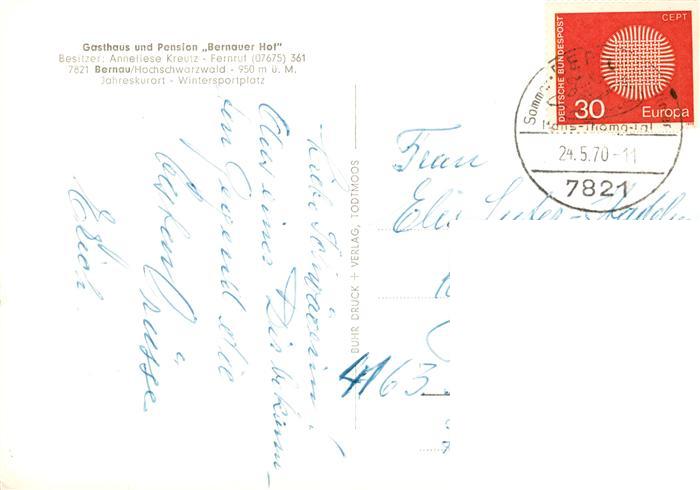 Gasthaus und Pension „Bernauer Hof"
Besitzer: Anneliese Kreutz - Fernruf (07675) 361
7821 Bernau/Hochschwarzwald - 950 m ü. M.
Jahreskurort - Wintersportplatz
Liebe Schwägerin!
Aus einer Dir bekann-
ten Gegend die
besten Grüsse
Erich
BUHR DRUCK + VERLAG, TODTMOOS
DEUTSCHE BUNDESPOST
CEPT
30
Europa
Hans-Thoma-Tal
24.5.70-11
7821
Frau
4163